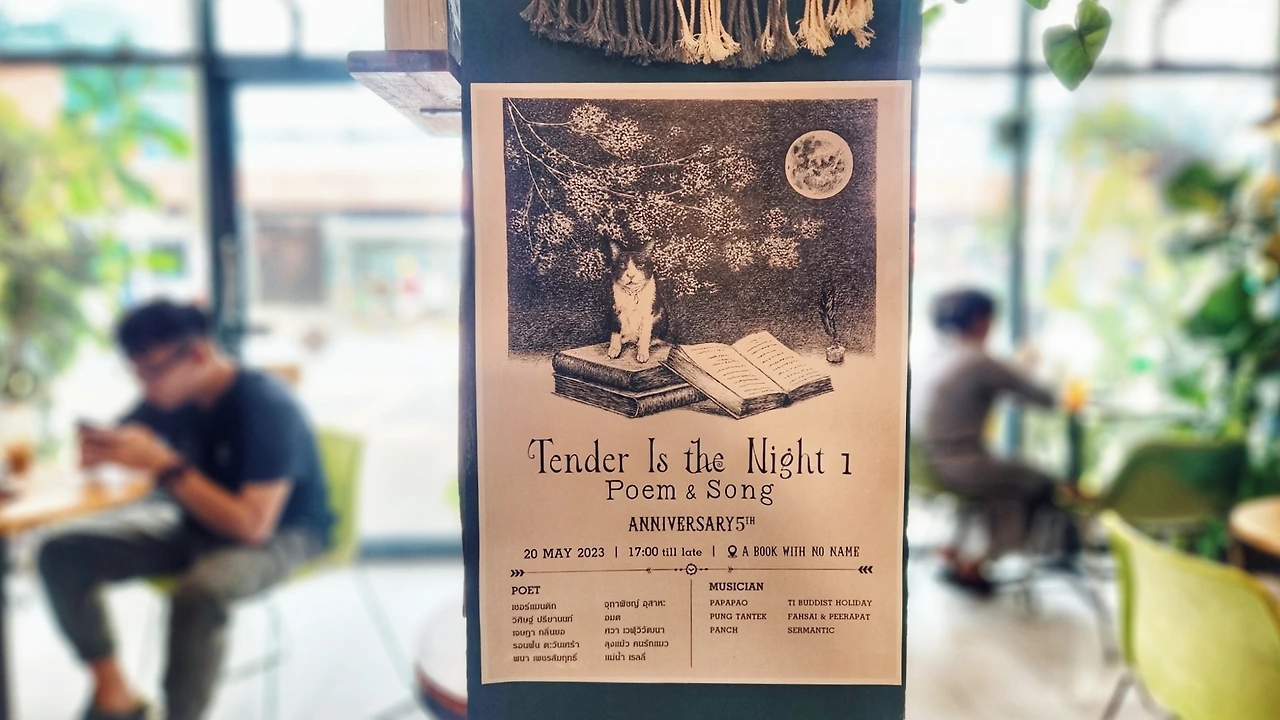 Tender Is the Night 1
Poem & Song
ANNIVERSARY 5TH
20 MAY 2023 | 17:00 till late | A BOOK WITH NO NAME
POET
เชอร์แมนติก
วิศิษฐ์ ปรียานนท์
เจษฎา กลิ่นยอ
รอนฝัน ตะวันเศร้า
พนา เพชรสัมฤทธิ์
จุฑาพิชญ์ อุสาหะ
อมต
ศวา เวฬุวิวัฒนา
ลุงแม้ว คนรักแมว
แม่น้ำ เรลลี่
MUSICIAN
PAPAPAO
PUNG TANTEK
PANCH
TI BUDDIST HOLIDAY
FAHSAI & PEERAPAT
SERMANTIC